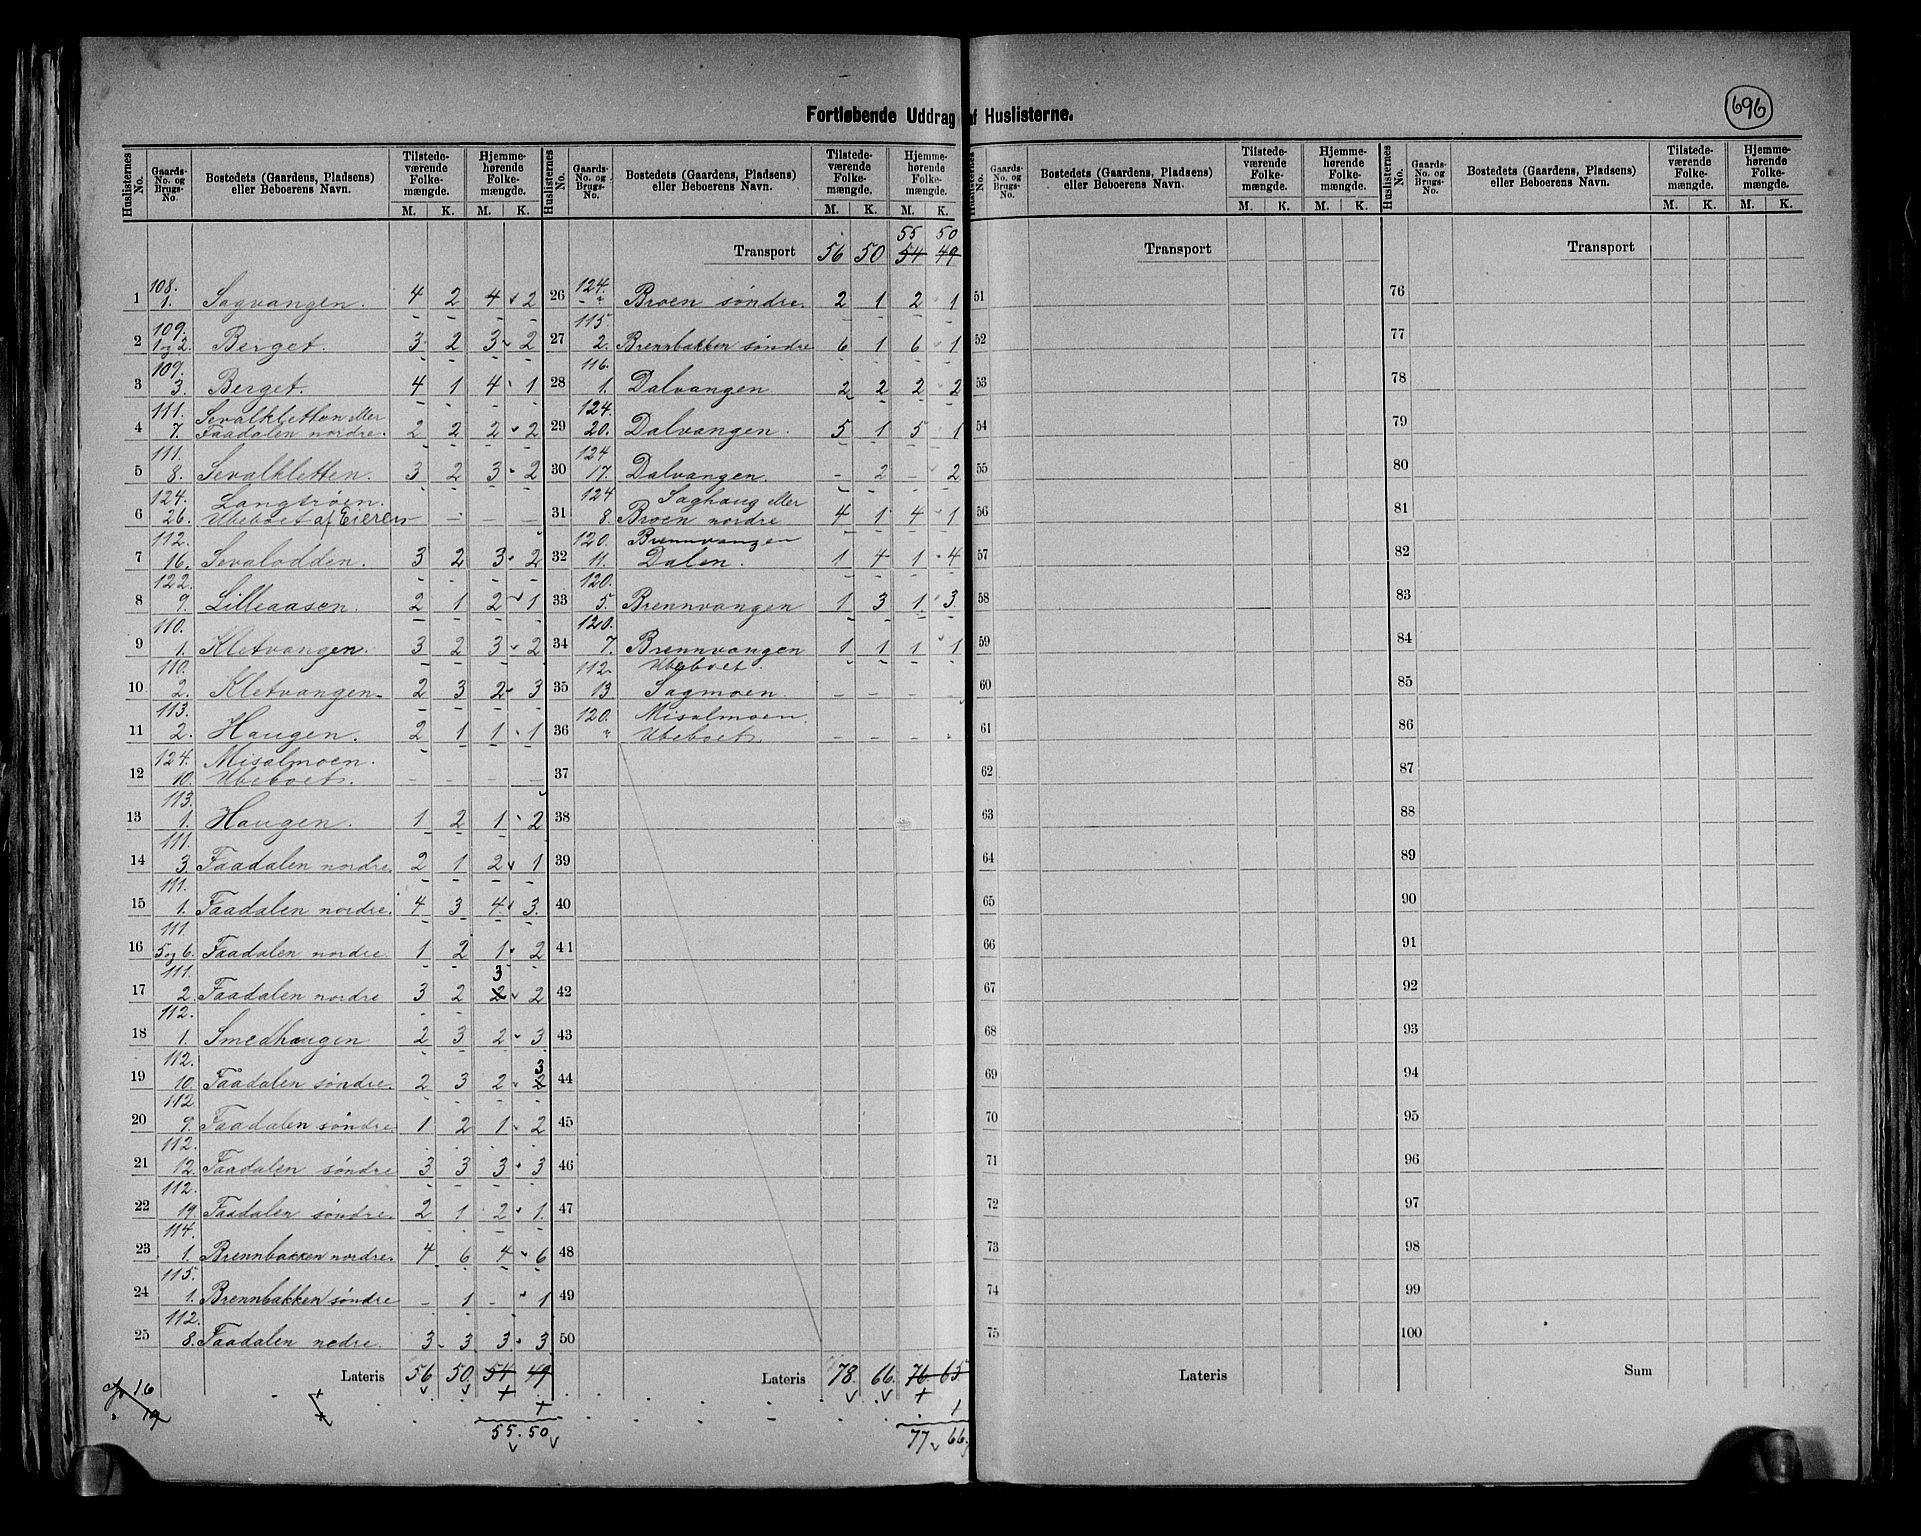 Fortløbende Uddrag af Huslisterne.
696
Huslisternes No. Gaards-No. og Brugs-No. Bostedets (Gaardens, Pladsens) eller Beboerens Navn. Tilstedeværende Folkemængde. M. K. Hjemmehørende Folkemængde. M. K.
1 108. 1. Sagvangen. 4 2 4 2
2 109. 1 og 2. Berget. 3 2 3 2
3 109. 3. Berget. 4 1 4 1
4 111. 7. Sevalkletten eller Faadalen nordre. 2 2 2 2
5 111. 8. Sevalkletten. 3 2 3 2
6 124. 26. Langtrøen. Ubeboet af Eieren – – – –
7 112. 16. Sevalodden. 3 2 3 2
8 122. 9. Lilleaasen. 2 1 2 1
9 110. 1. Kletvangen. 3 2 3 2
10 110. 2. Kletvangen. 2 3 2 3
11 113. 2. Haugen. 2 1 1 1
12 124. 10. Misalmoen. Ubeboet. – – – –
13 113. 1. Haugen. 1 2 1 2
14 111. 3. Faadalen nordre. 2 1 2 1
15 111. 1. Faadalen nordre. 4 3 4 3.
16 111. 5 og 6. Faadalen nordre 1 2 1 2
17 111. 2. Faadalen nordre 3 2 3 2 2
18 112. 1. Smedhaugen 2 3 2 3
19 112. 10. Faadalen søndre. 2 3 2 3 2
20 112. 9. Faadalen søndre 1 2 1 2
21 112. 12. Faadalen søndre 3 3 3 3
22 112. 19. Faadalen søndre. 2 1 2 1.
23 114. 1. Brennbakken nordre. 4 6 4 6
24 115. 1. Brennbakken søndre – 1 – 1
25 112. 8. Faadalen nedre. 3 3 3 3
Lateris 56 50. 54 49
+
+
55. 50
cfr 16
" 19
Huslisternes No. Gaards-No. og Brugs-No. Bostedets (Gaardens, Pladsens) eller Beboerens Navn. Tilstedeværende Folkemængde. M. K. Hjemmehørende Folkemængde. M. K.
55 50
Transport 56 50 54 49
26 124. – " Broen søndre. 2 1 2 1
27 115. 2. Brennbakken søndre 6 1 6 1
28 116. 1. Dalvangen 2 2 2 2
29 124. 20. Dalvangen. 5 1 5 1
30 124 17. Dalvangen. – 2 – 2
31 124 8. Saghaug eller Broen nordre 4 1 4 1
32 120. 11. Brennvangen Dalen. 1 4 1 4
33 120. 5. Brennvangen 1 3 1 3
34 120. 7. Brennvangen 1 1 1 1
35 112. 13 Ubeboet. Sagmoen. – – – –
36 120. " Misalmoen. Ubeboet. – – – –
37
38
39
40
41
42
43
44
45
46
47
48
49
50
Lateris 78. 66. 76 65
+
1
77 66.
Huslisternes No. Gaards-No. og Brugs-No. Bostedets (Gaardens, Pladsens) eller Beboerens Navn. Tilstedeværende Folkemængde. M. K. Hjemmehørende Folkemængde. M. K.
Transport
51
52
53
54
55
56
57
58
59
60
61
62
63
64
65
66
67
68
69
70
71
72
73
74
75
Lateris
Huslisternes No. Gaards-No. og Brugs-No. Bostedets (Gaardens, Pladsens) eller Beboerens Navn. Tilstedeværende Folkemængde. M. K. Hjemmehørende Folkemængde. M. K.
Transport
76
77
78
79
80
81
82
83
84
85
86
87
88
89
90
91
92
93
94
95
96
97
98
99
100
Sum